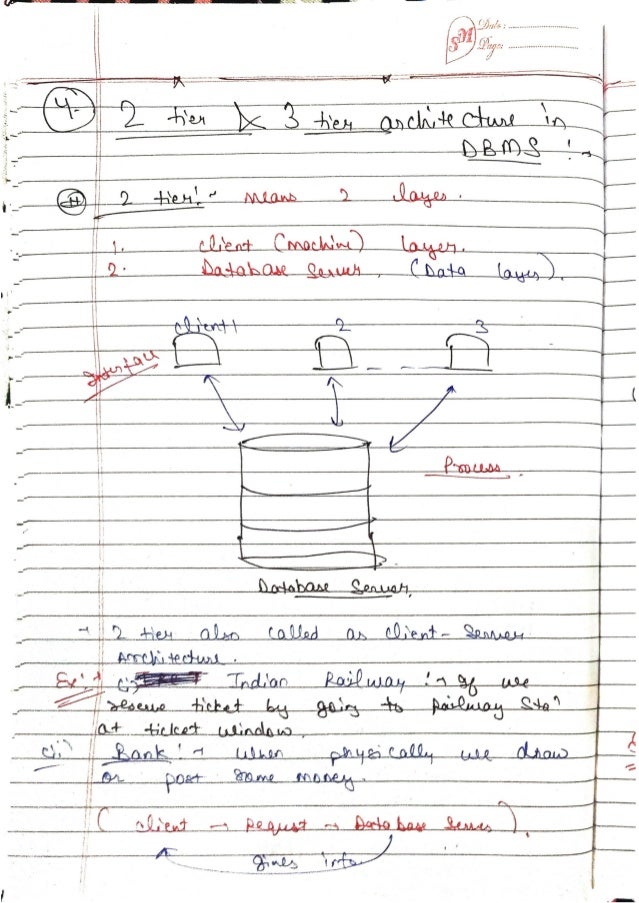 SM Date:
Page:
4. 2 tier & 3 tier architecture in
DBMS :→
2 tier:~ means 2 layes.
1. client (machine) layer.
2. Database server. (Data layer).
client 1 2 3
Interface
Process.
Database Server.
→ 2 tier also called as client - Server
Architecture.
Ex:→ (i) Indian Railway :→ If we
reserve ticket by going to Railway Statn
at ticket window.
(ii) Bank :→ When physically we draw
or post some money.
(client → Request → Database Server).
gives info